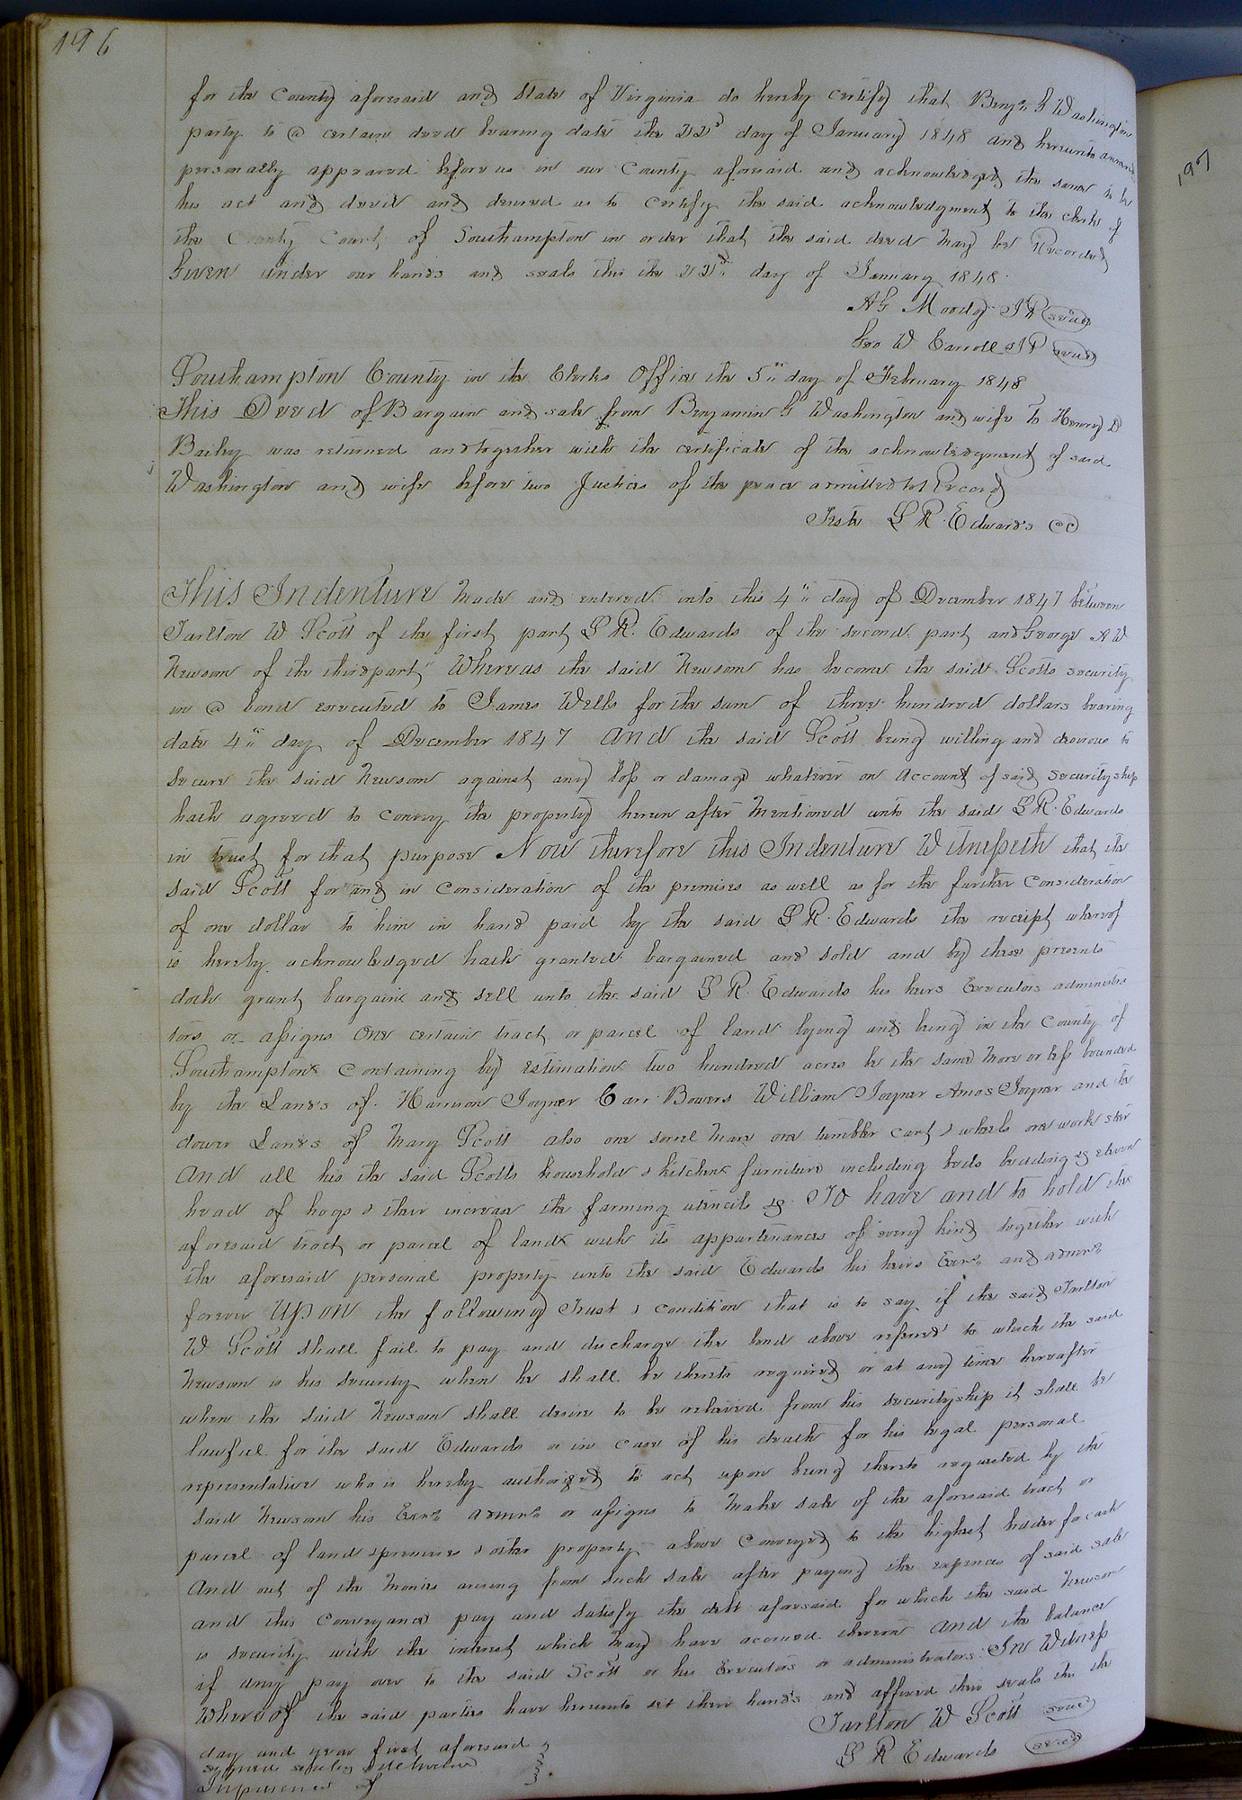 196
for the County aforesaid and State of Virginia do hereby certify that Benjn G Washington
party to a certain deed bearing date the 22d day of January 1848 and hereunto annexed
personally appeared before us in our County aforesaid and acknowledged the same to be
his act and deed and desired us to certify the said acknowledgment to the clerk of
the County Court of Southampton in order that the said deed may be Recorded
Given under our hands and seals this the 22d day of January 1848
AG Moody JP seal
Geo W Carroll JP seal
Southampton County in the Clerks Office the 5th day of February 1848
This Deed of Bargain and sale from Benjamin G Washington and wife to Henry D
Bailey was returned and together with the certificate of the acknowledgment of said
Washington and wife before two Justices of the peace admitted to Record
Teste L R Edwards CC
197
This Indenture made and entered into this 4th day of December 1847 between
Tarlton W Scott of the first part L R. Edwards of the second part and George A W
Newsom of the third part Whereas the said Newsom has become the said Scotts security
in a bond executed to James Wells for the sum of three hundred dollars bearing
date 4th day of December 1847 And the said Scott being willing and desirous to
secure the said Newsom against any loss or damage whatever on account of said securityship
hath agreed to convey the property herein after mentioned unto the said L R. Edwards
in trust for that purpose Now therefore this Indenture Witnesseth that the
said Scott for and in consideration of the premises as well as for the further consideration
of one dollar to him in hand paid by the said L R. Edwards the receipt whereof
is hereby acknowledged hath granted bargained and sold and by these presents
doth grant bargain and sell unto the said L R. Edwards his heirs Executors administra
tors or assigns One certain tract or parcel of land lying and being in the County of
Southampton Containing by estimation two hundred acres be the same more or less bounded
by the Lands of Harrison Joyner Carr Bowers William Joyner Amos Joyner and the
dower Lands of Mary Scott also one sorrel mare one tumbler cart & wheels one work steer
And all his the said Scotts household & kitchen furniture including beds bedding &c eleven
head of hogs & their increase the farming utencils &c. To have and to hold the
aforesaid tract or parcel of land with its appurtenances of every kind together with
the aforesaid personal property unto the said Edwards his heirs Exors and admors
forever Upon the following Trust & condition that is to say if the said Tarlton
W Scott shall fail to pay and discharge the bond above referred to which the said
Newsom is his security when he shall be thereto required or at any time hereafter
when the said Newsom shall desire to be relieved from his securityship it shall be
lawful for the said Edwards or in case of his death for his legal personal
representative who is hereby authorized to act upon being thereto requested by the
said Newsom his Exors admors or assigns to make sale of the aforesaid tract or
parcel of land & premises & other property above conveyed to the highest bidder for cash
And out of the monies arising from such sale after paying the expences of said sale
and this conveyance pay and satisfy the debt aforesaid for which the said Newsom
is security with the interest which may have accrued thereon And the balance
if any pay over to the said Scott or his Executors or administrators. In Witness
Whereof the said parties have hereunto set their hands and affixed their seals the the
day and year first aforesaid
Tarlton W Scott seal
signed sealed & delivered
L R Edwards seal
In presence of